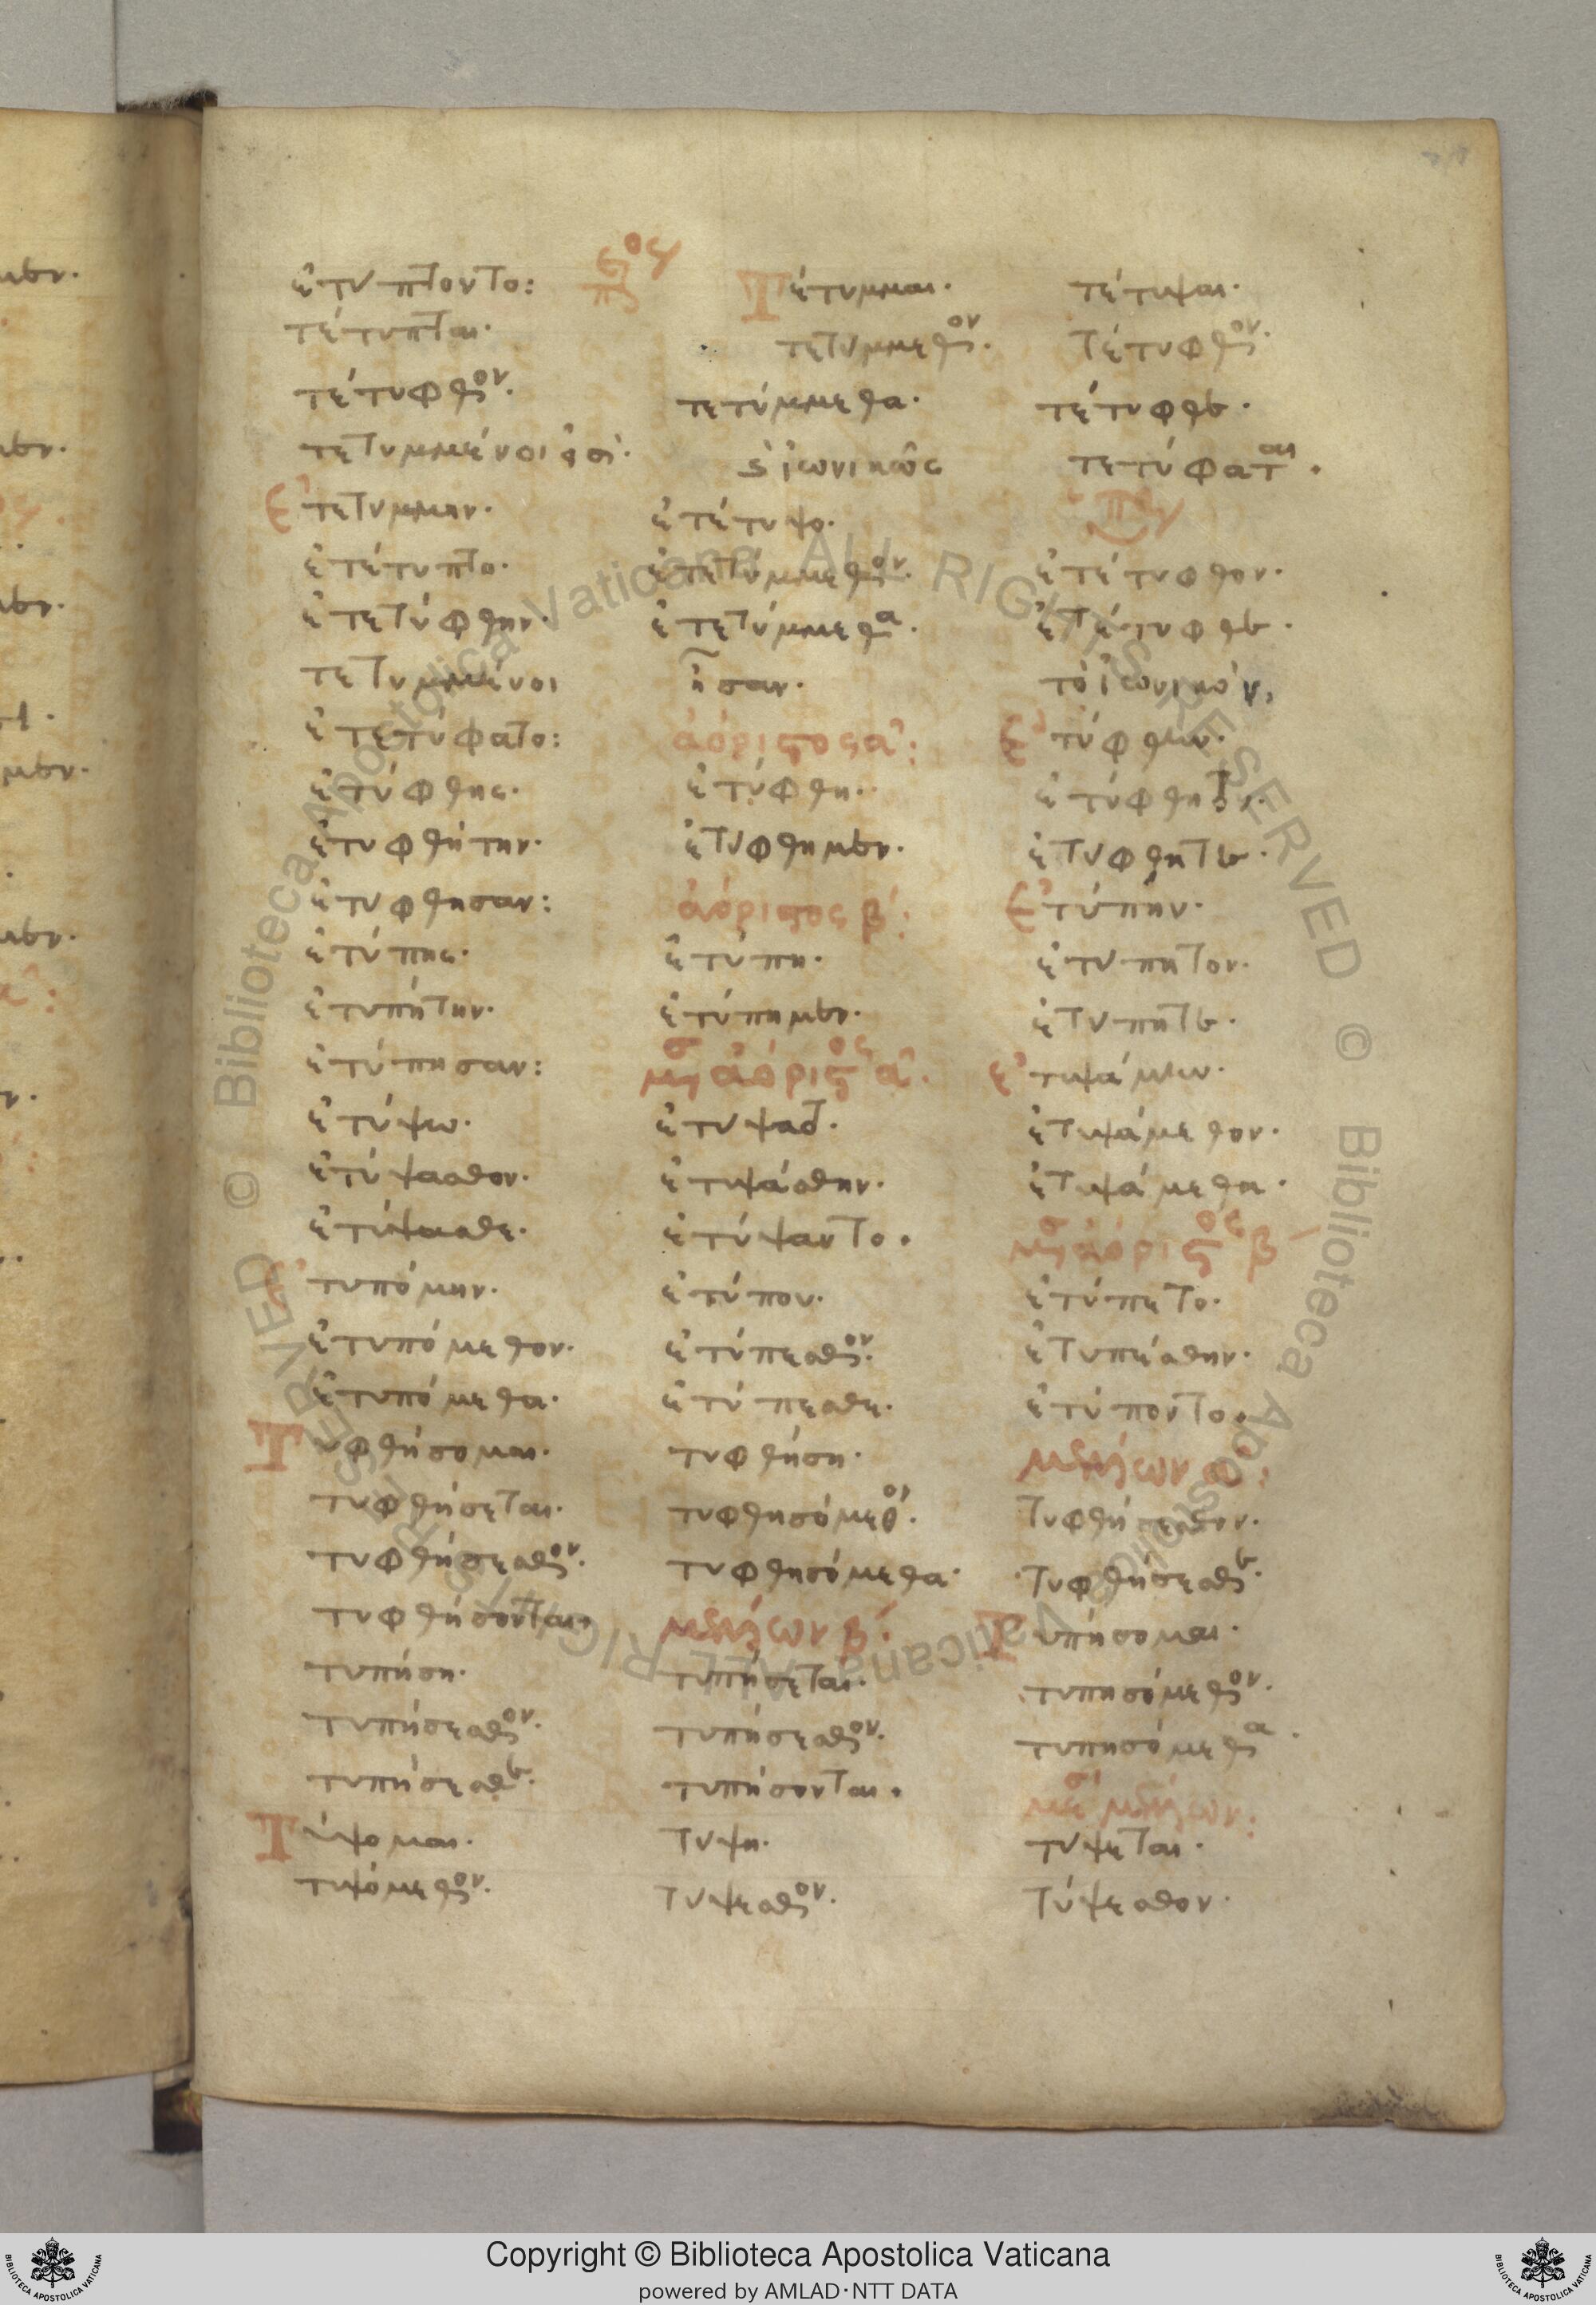 ἐτύπτοντο: τέτυμμαι· τέτυψαι·
τέτυπται· τετύμμεθον· τέτυφθον·
τέτυφθον· τετύμμεθα· τέτυφθε·
τετυμμένοι εἰσί· ἰωνικῶς τετύφαται·
ἐτετύμμην· ἐτέτυψο·
ἐτέτυπτο· ἐτετύμμεθον· ἐτέτυφθον·
ἐτετύφθην· ἐτετύμμεθα· ἐτέτυφθε·
τετυμμένοι ἦσαν· τὸ ἰωνικόν,
ἐτετύφατο: ἀόριστος α΄: ἐτύφθην·
ἐτύφθης· ἐτύφθη· ἐτύφθητον·
ἐτυφθήτην· ἐτύφθημεν· ἐτύφθητε·
ἐτύφθησαν: ἀόριστος β΄: ἐτύπην·
ἐτύπης· ἐτύπη· ἐτύπητον·
ἐτυπήτην· ἐτύπημεν· ἐτύπητε·
ἐτύπησαν: μέσος ἀόριστος α΄· ἐτυψάμην·
ἐτύψω· ἐτύψατο· ἐτυψάμεθον·
ἐτύψασθον· ἐτυψάσθην· ἐτυψάμεθα·
ἐτύψασθε· ἐτύψαντο· μέσος ἀόριστος β΄
ἐτυπόμην· ἐτύπου· ἐτύπετο·
ἐτυπόμεθον· ἐτύπεσθον· ἐτυπέσθην·
ἐτυπόμεθα· ἐτύπεσθε· ἐτύποντο·
τυφθήσομαι· τυφθήση· μέλλων α΄:
τυφθήσεται· τυφθησόμεθον· τυφθήσεσθον·
τυφθήσεσθον· τυφθησόμεθα· τυφθήσεσθε·
τυφθήσονται· μέλλων β΄: τυπήσομαι·
τυπήση· τυπήσεται· τυπησόμεθον·
τυπήσεσθον· τυπήσεσθον· τυπησόμεθα·
τυπήσεσθε· τυπήσονται· μέσος μέλλων:
τύψομαι· τύψη· τύψεται·
τυψόμεθον· τύψεσθον· τύψεσθον·
Copyright © Biblioteca Apostolica Vaticana
powered by AMLAD·NTT DATA